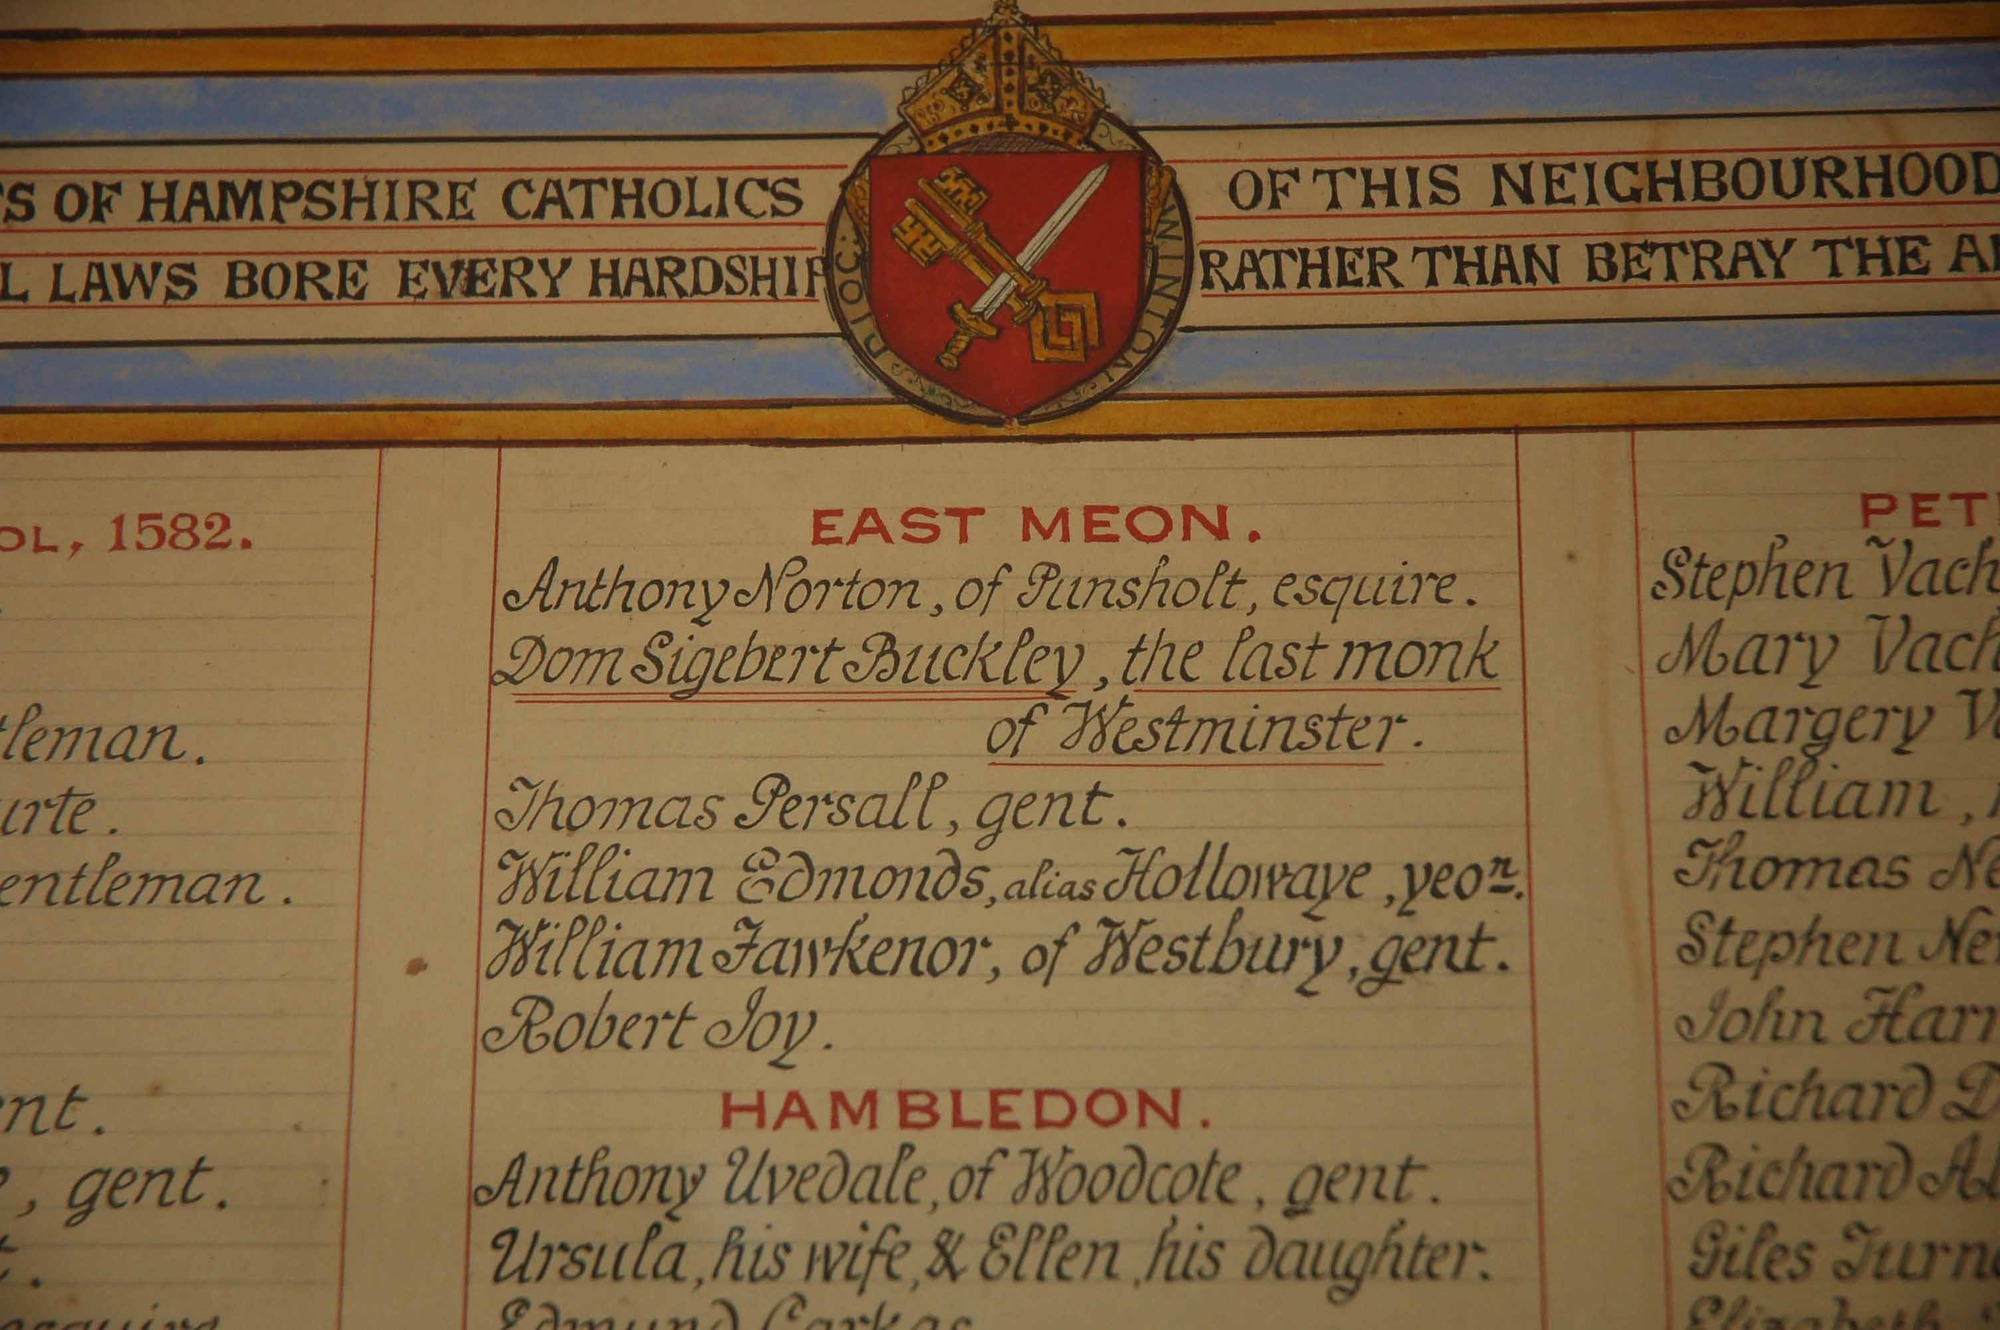 S OF HAMPSHIRE CATHOLICS OF THIS NEIGHBOURHOOD
LAWS BORE EVERY HARDSHIP RATHER THAN BETRAY THE
DIOC: WINTON
1582.
EAST MEON.
Anthony Norton, of Punsholt, esquire.
Dom Sigebert Buckley, the last monk
of Westminster.
Thomas Persall, gent.
William Edmonds, alias Hollowaye, yeoⁿ.
William Fawkenor, of Westbury, gent.
Robert Joy.
HAMBLEDON.
Anthony Uvedale, of Woodcote, gent.
Ursula, his wife, & Ellen, his daughter.
Edmund Carkas
tleman.
urte.
entleman.
nt.
, gent.
PET
Stephen Vach
Mary Vach
Margery V
William,
Thomas Ne
Stephen Ne
John Harr
Richard D
Richard Al
Giles Turn
Elizabeth